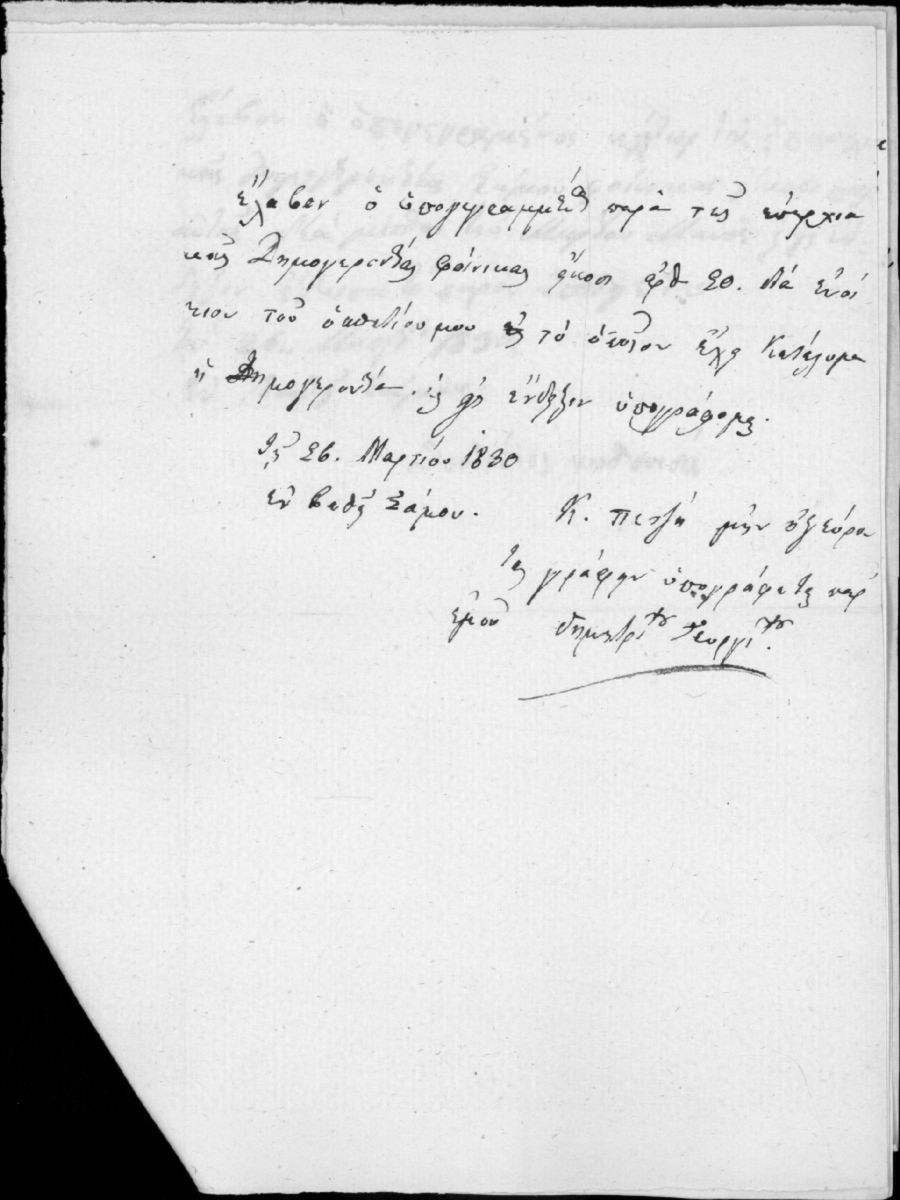 ἔλαβεν ὁ ὑπογεγραμμένος παρὰ τῆς ἐπαρχια
κῆς Δημογεροντίας φοίνικας ἤκοσι ἀρθ 20. διὰ ἐνοί
κιον τοῦ ὁσπιτίου μου εἰς τὸ ὁποῖον εἶχε Κατάλυμα
ἡ Δημογεροντία. εἰς ἔνδειξιν ὑπογράφομαι.
τῇ 26. Μαρτίου 1830
ἐν βαθεῖ Σάμου.
Κ. μὴν ἠξεύρον
τας γράφειν ὑπογράφεται παρ
ἐμοῦ δημητρίου Γεωργίου.